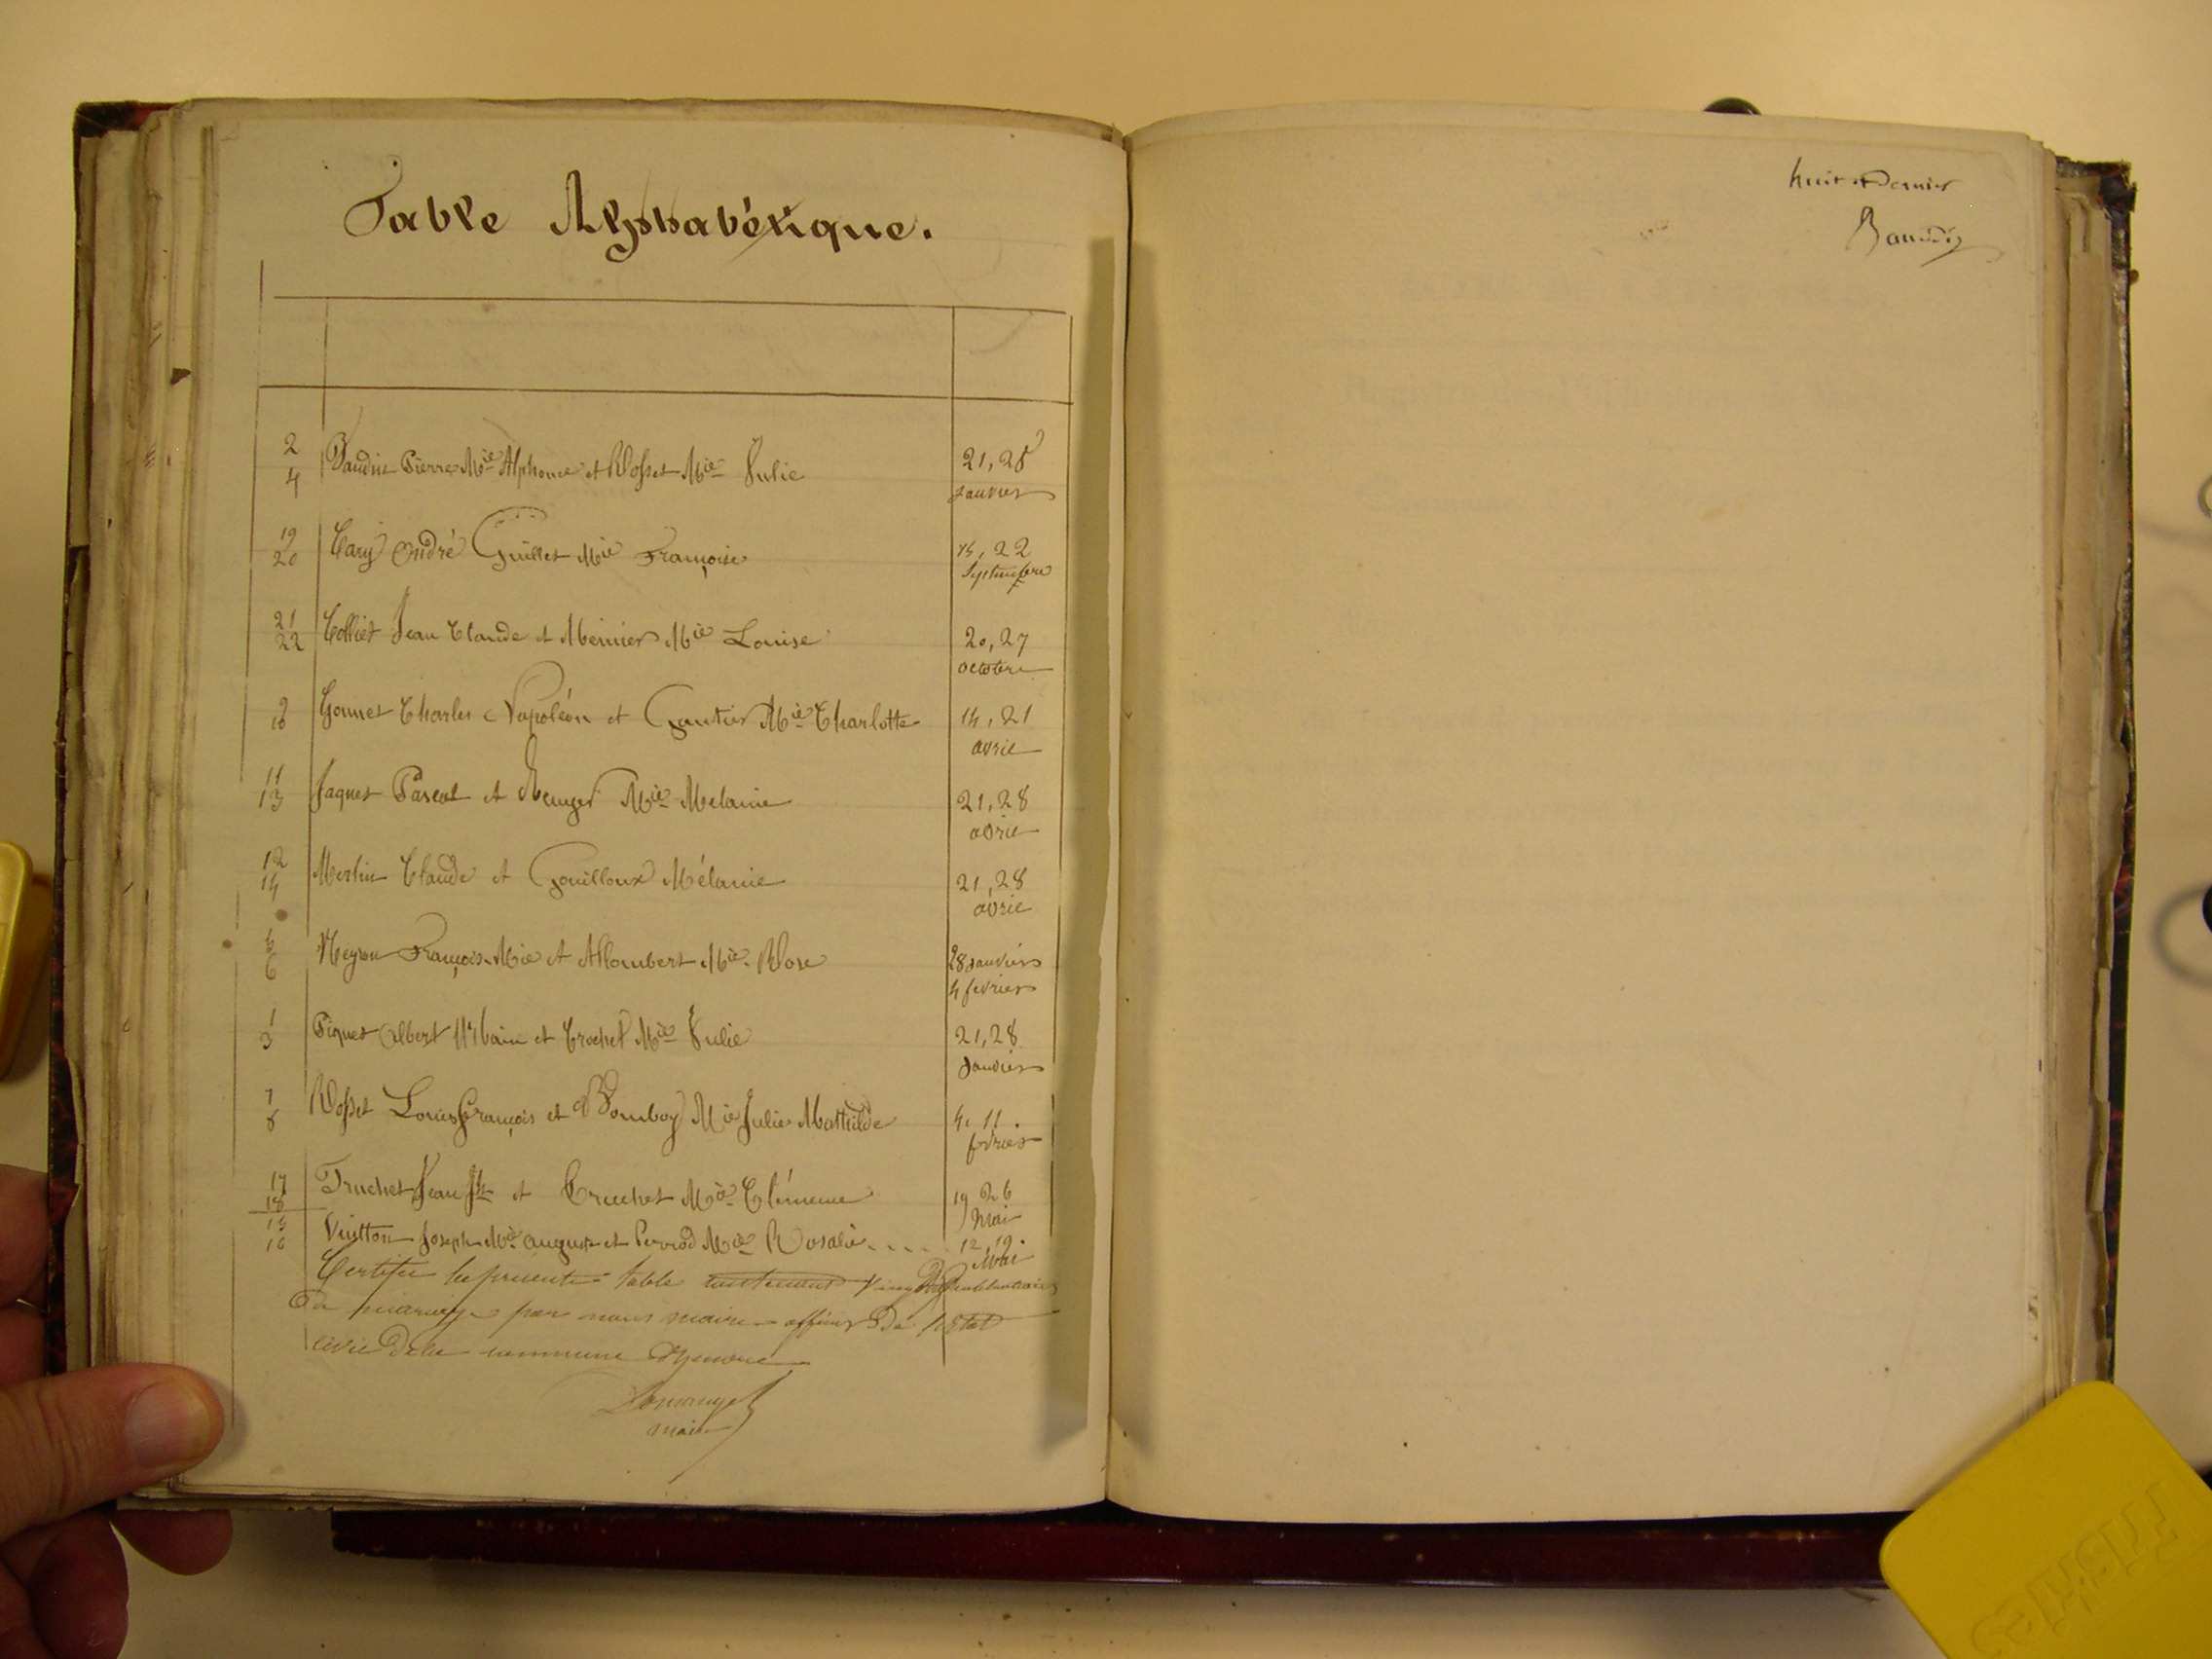 Table Alphabétique.
2
4 Baudin Pierre Mie Alphonse et Rosset Mie Julie 21, 28
janvier
19
20 Cary André Guillet Mie Françoise 15, 22
Septembre
21
22 Colliet Jean Claude et Meinier Mie Louise 20, 27
octobre
9
10 Gonnet Charles Napoléon et Gautier Mie Charlotte 14, 21
avril
11
13 Jaquet Pascal et Mie Melanie 21, 28
avril
12
14 Merlin Claude et Gouilloux Mélanie 21, 28
avril
5
6 Neyron François Mie et Allombert Mie Rose 28 janvier
4 fevrier
1
3 Piquet Albert Urbain et Crochet Mie Julie 21, 28
Janvier
7
8 Rosset Louis François et Bomboy Mie Julie Mathilde 4, 11.
fevrier
17
18 Truchet Jean Bte et Cruchet Mie Clémence 19 26
Mai
15
16 Vuitton Joseph Mie auguste et Perrod Mie Rosalie.... 12, 19.
Mai
Certifie la presente table contenant vingt publications
de mariage par nous maire officier de l'état
civil de la commune
maire
huit et Dernier
Baudin